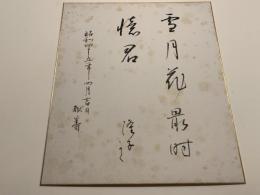 雪月花最時
憶君
昭和四十五年四月吉日